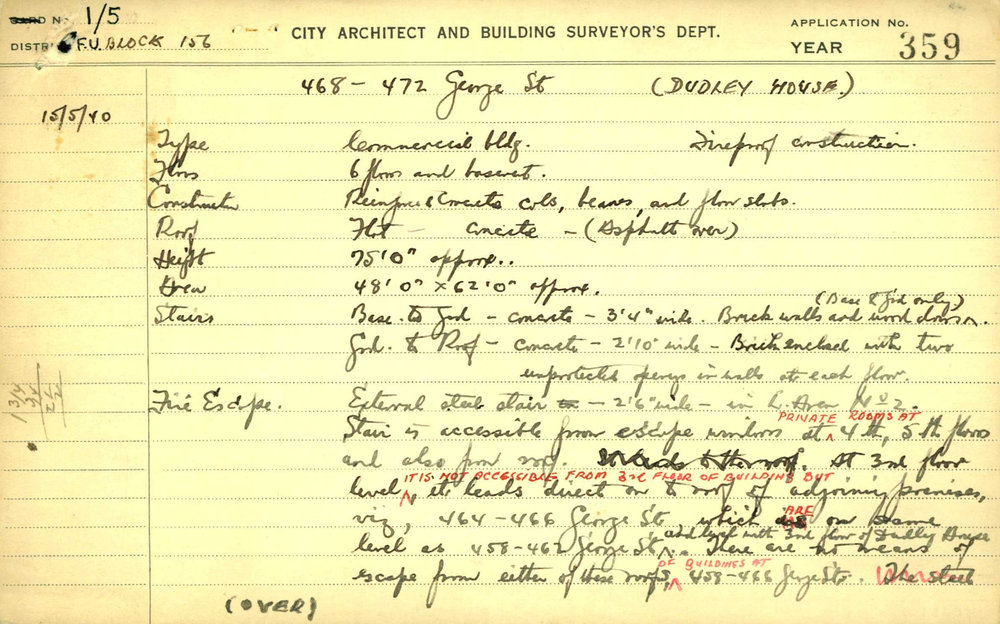 CARD No. 1/5
CITY ARCHITECT AND BUILDING SURVEYOR'S DEPT.
APPLICATION No.
DISTRICT F.U. BLOCK 156
YEAR 359
468 - 472 George St (DUDLEY HOUSE.)
15/5/40
Type Commercial bldg. Fireproof construction.
Floors 6 floors and basemt.
Constructn Reinforced Concrete cols, beams, and floor slabs.
Roof Flat - concrete - (Asphalt over)
Height 75'0" approx..
Area 48'0" x 62'0" approx.
(Base & Grd only)
Stairs Base. to Grd - concrete - 3'4" wide. Brick walls and wood doors ^.
Grd. to Roof - concrete - 2'10" wide - Brick enclosed with two
unprotected opengs in walls at each floor.
Fire Escpe. External steel stair - 2'6" wide - in L. Area No 2.
PRIVATE ROOMS AT
Stair is accessible from escape windows at ^ 4th, 5th floors
and also from roof. It leads to the roof. At 3rd floor
IT IS NOT ACCESSIBLE FROM 3rd FLOOR OF BUILDING BUT
level ^, it leads direct on to roof of adjoining premises,
ARE
viz, 464-466 George St. which on same
and level with 3rd floor of Dudley House
level as 458-462 George St ^. There are no means of
OF BUILDINGS AT
escape from either of these roofs, ^ 458-466 George St. The steel
(OVER)